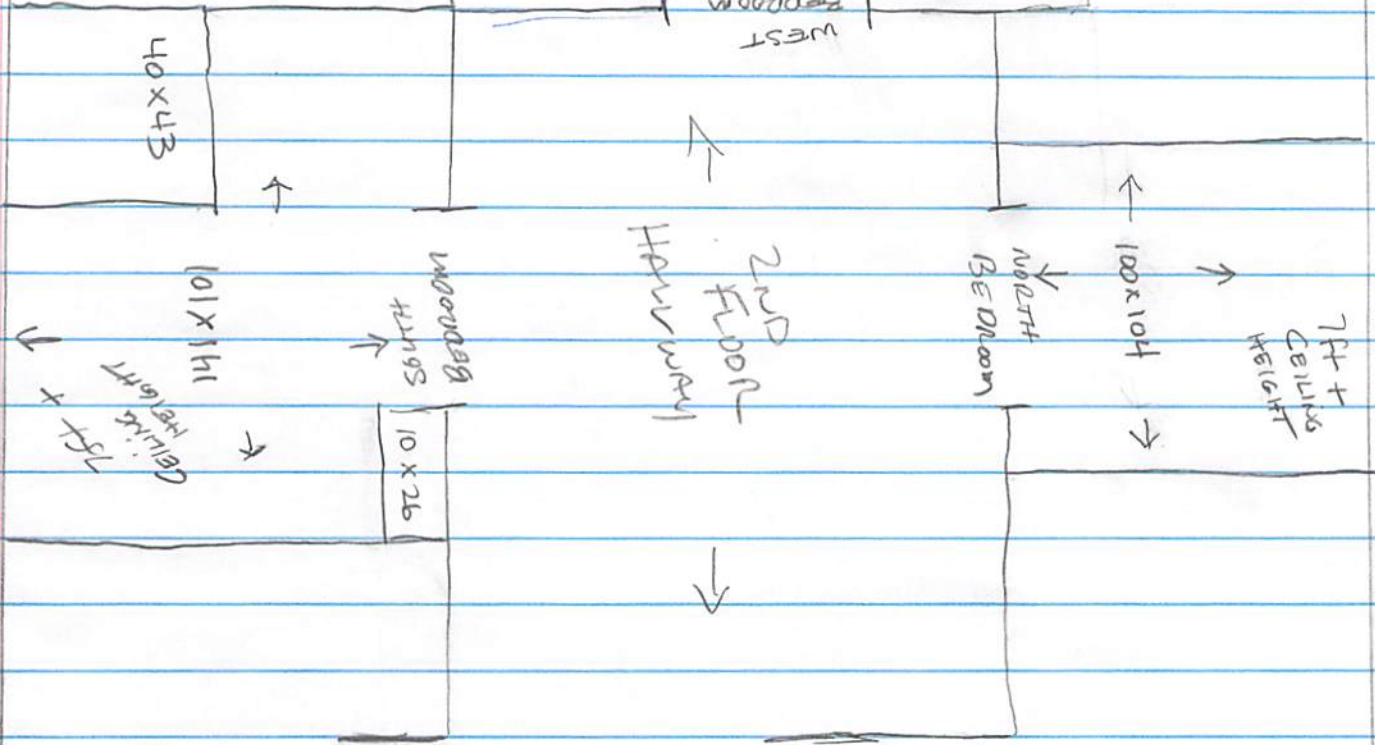 WEST
BEDROOM
40 x 43
101 x 141
7ft +
CEILING
HEIGHT
SOUTH
BEDROOM
10 x 26
2ND
FLOOR
HALLWAY
NORTH
BEDROOM
100 x 104
7ft +
CEILING
HEIGHT